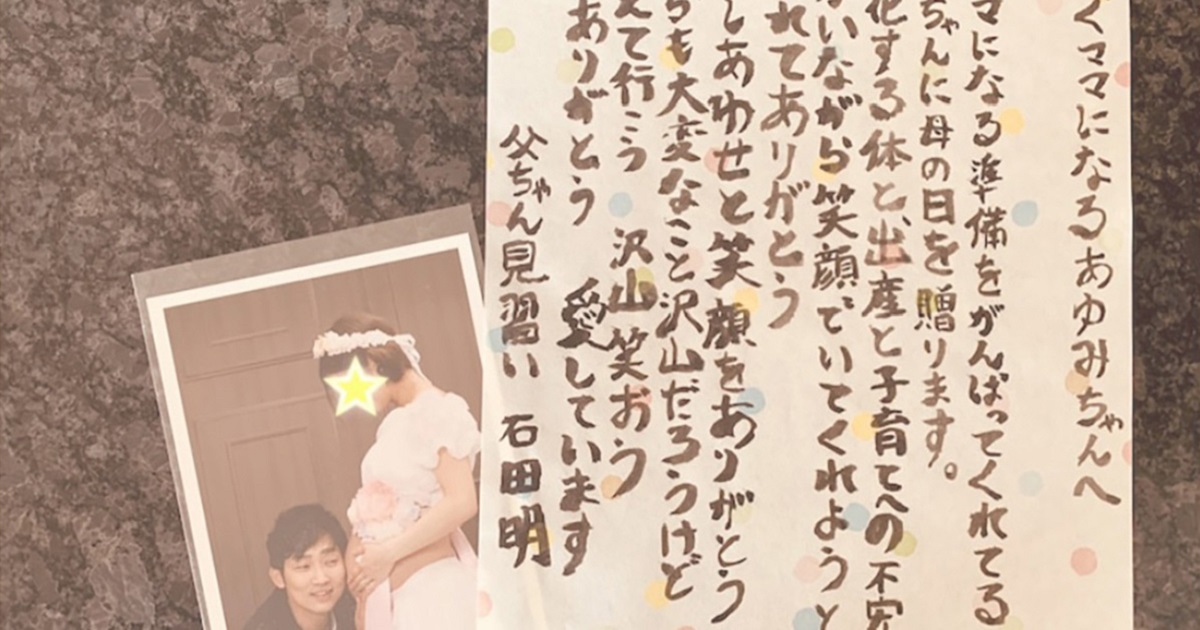 くママになるあゆみちゃんへ
マになる準備をがんばってくれてる
ちゃんに母の日を贈ります。
化する体と、出産と子育てへの不安
いながら笑顔でいてくれようと
れてありがとう
しあわせと笑顔をありがとう
らも大変なこと沢山だろうけど
えて行こう 沢山笑おう
ありがとう 愛しています
父ちゃん見習い 石田明